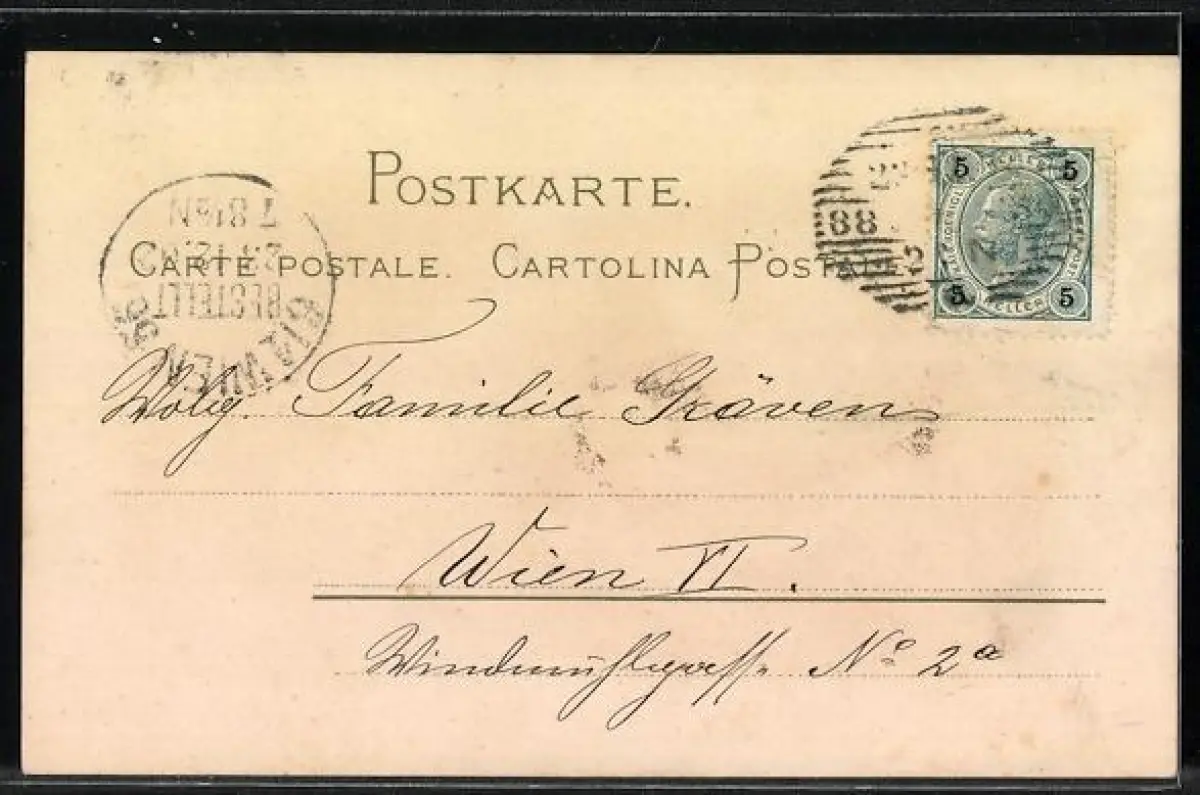 POSTKARTE.
CARTE POSTALE. CARTOLINA POSTALE
5 5
5 HELLER 5
88
7. 8½ N
BESTELLT
WIEN
Wolg. Familie Gräven
Wien VI.
Windmühlgasse No 2a